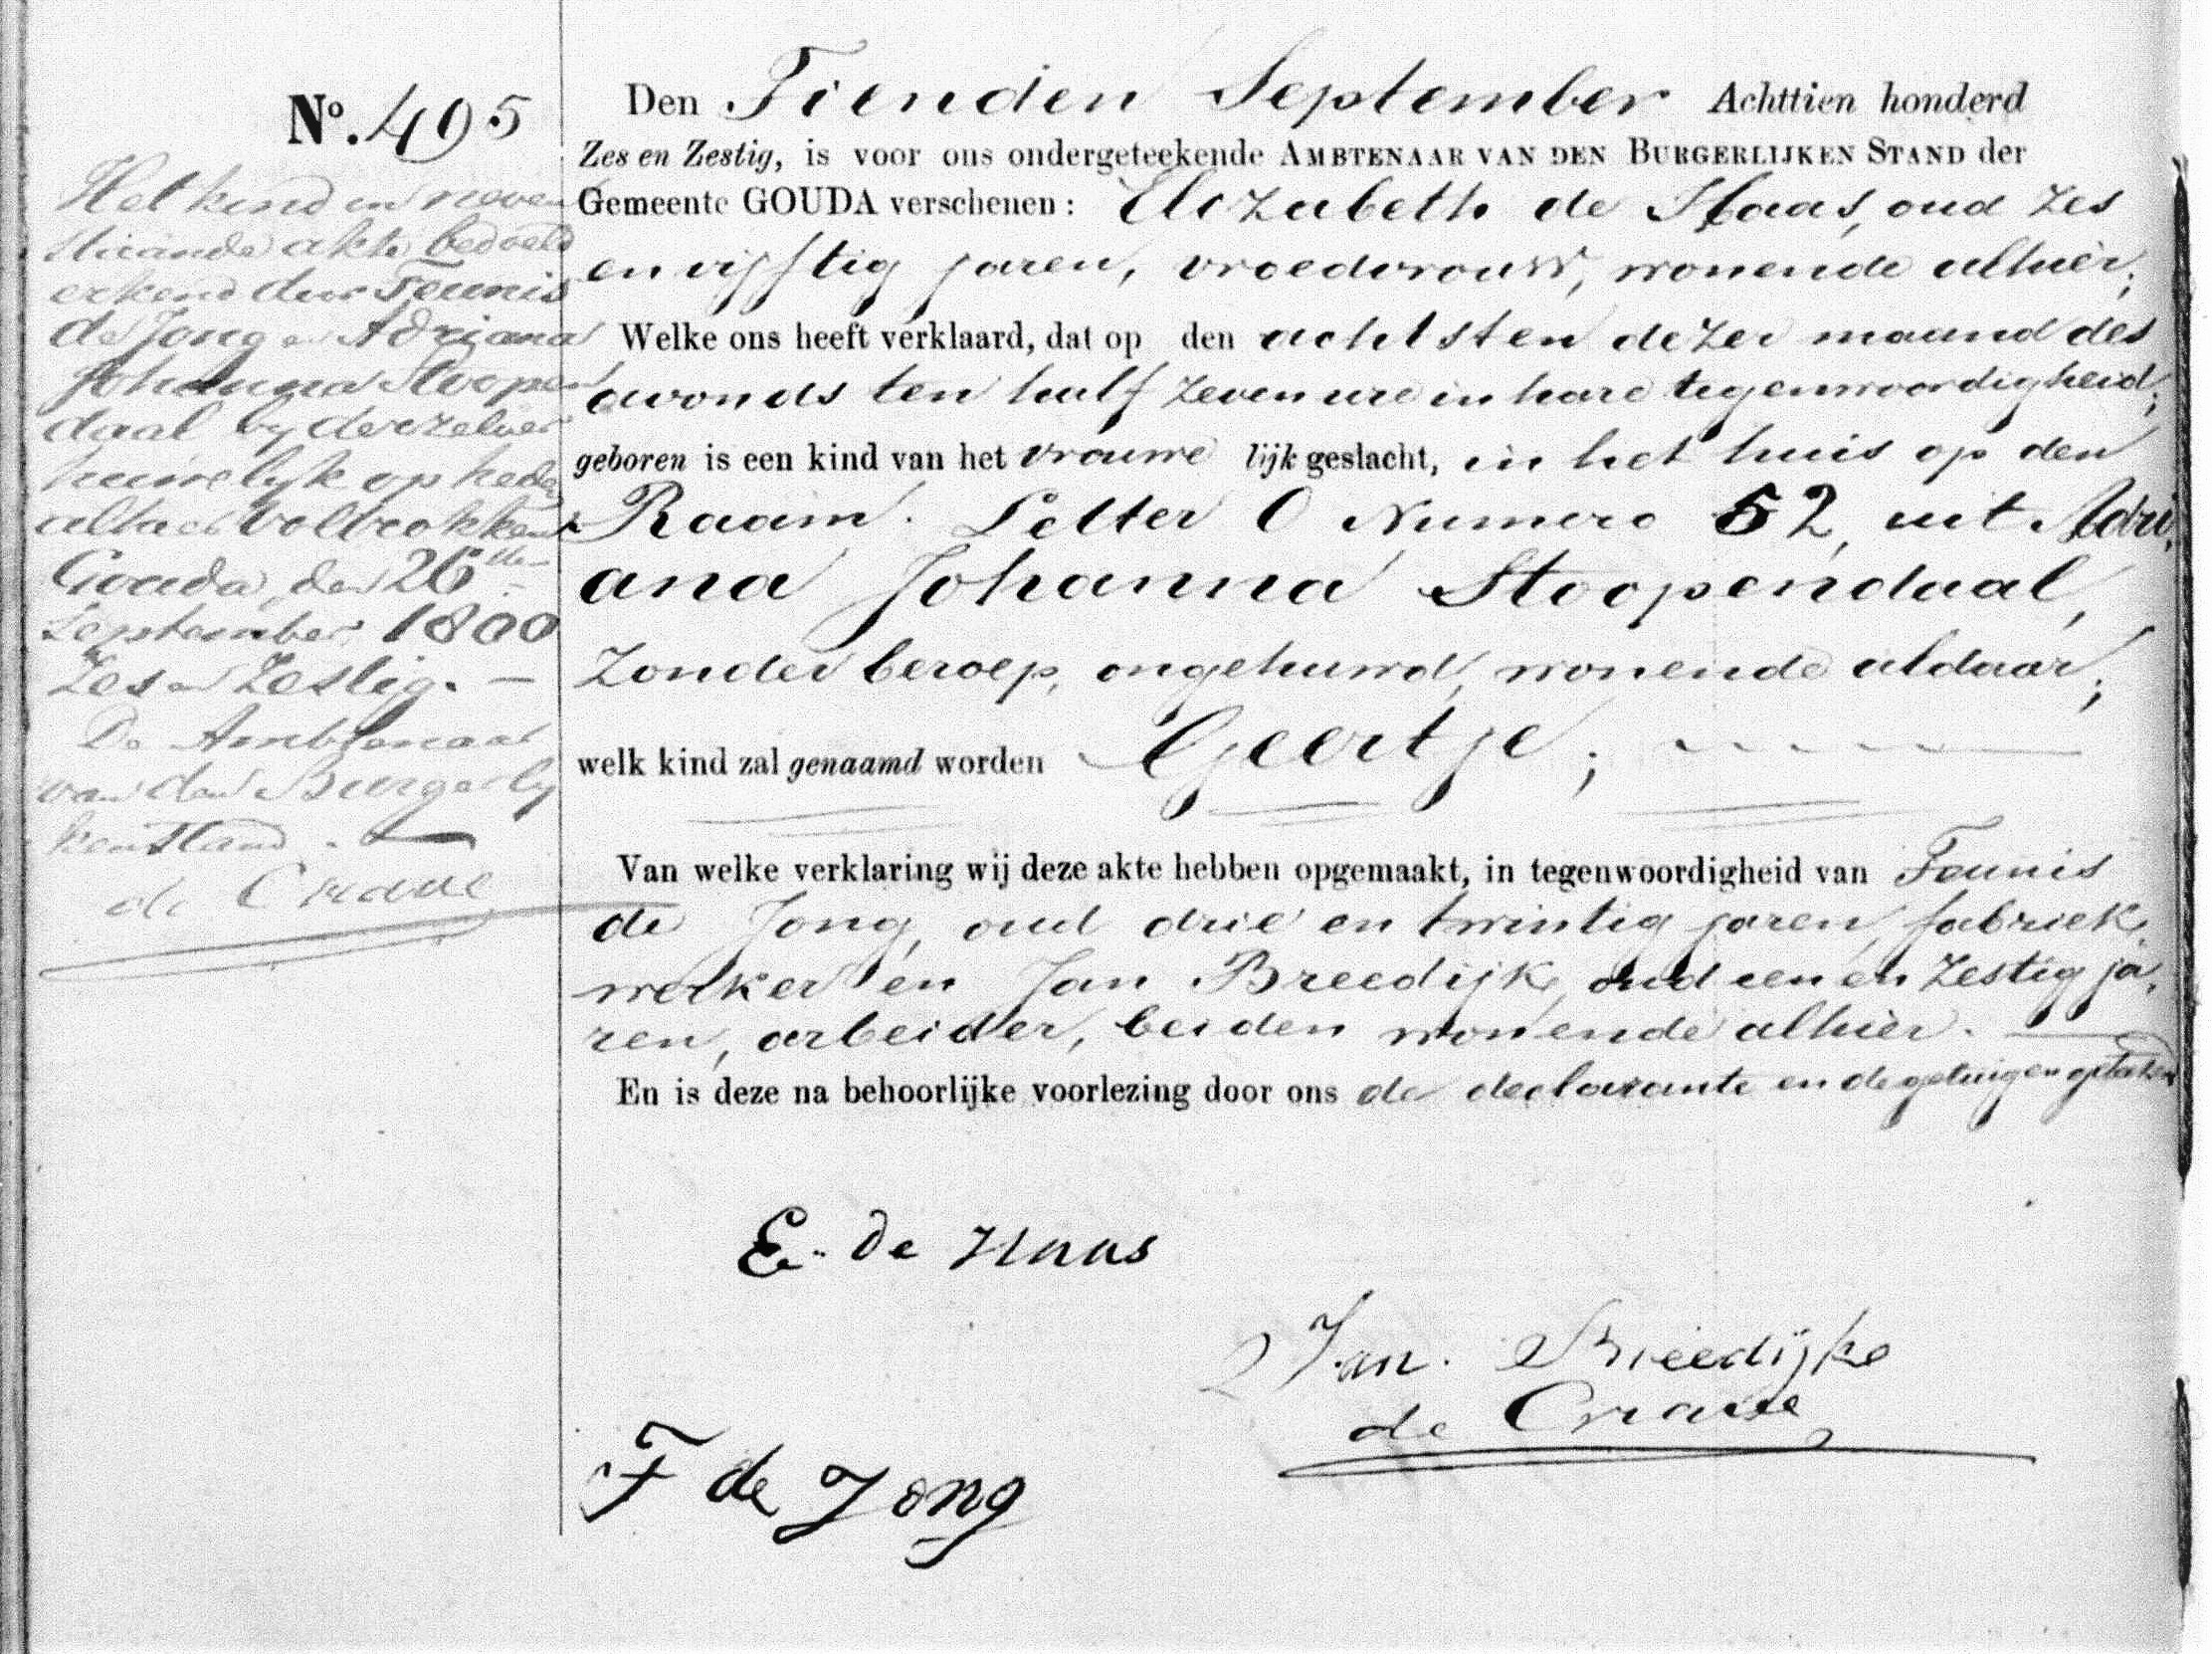 No. 495
Het kind in neven
staande akte bedoeld
erkend door Teunis
de Jong en Adriana
Johanna Stoopen
daal by derzelver
huwelyk op heden
alhier voltrokken
Gouda, den 26sten
September 1800
Zes en Zestig. —
De Ambtenaar
van den Burgerly
ken Stand.
de Crane
Den Tienden September Achttien honderd
Zes en Zestig, is voor ons ondergeteekende AMBTENAAR VAN DEN BURGERLIJKEN STAND der
Gemeente GOUDA verschenen: Elizabeth de Haas, oud zes
en vijftig jaren, vroedvrouw, wonende alhier;
Welke ons heeft verklaard, dat op den achtsten dezer maand des
avonds ten half zeven ure in hare tegenwoordigheid,
geboren is een kind van het vrouwelijk geslacht, in het huis op den
Raam. Letter O Numero 52, uit Adri,
ana Johanna Stoopendaal,
zonder beroep, ongehuwd, wonende aldaar;
welk kind zal genaamd worden Geertje;
Van welke verklaring wij deze akte hebben opgemaakt, in tegenwoordigheid van Teunis
de Jong, oud drie en twintig jaren, fabriek,
werker en Jan Breedijk, oud een en zestig ja,
ren, arbeider, beiden wonende alhier.
En is deze na behoorlijke voorlezing door ons de declarante en de getuigen geteekend
E. de Haas
Jan. Breedijke
de Crane
T de Jong